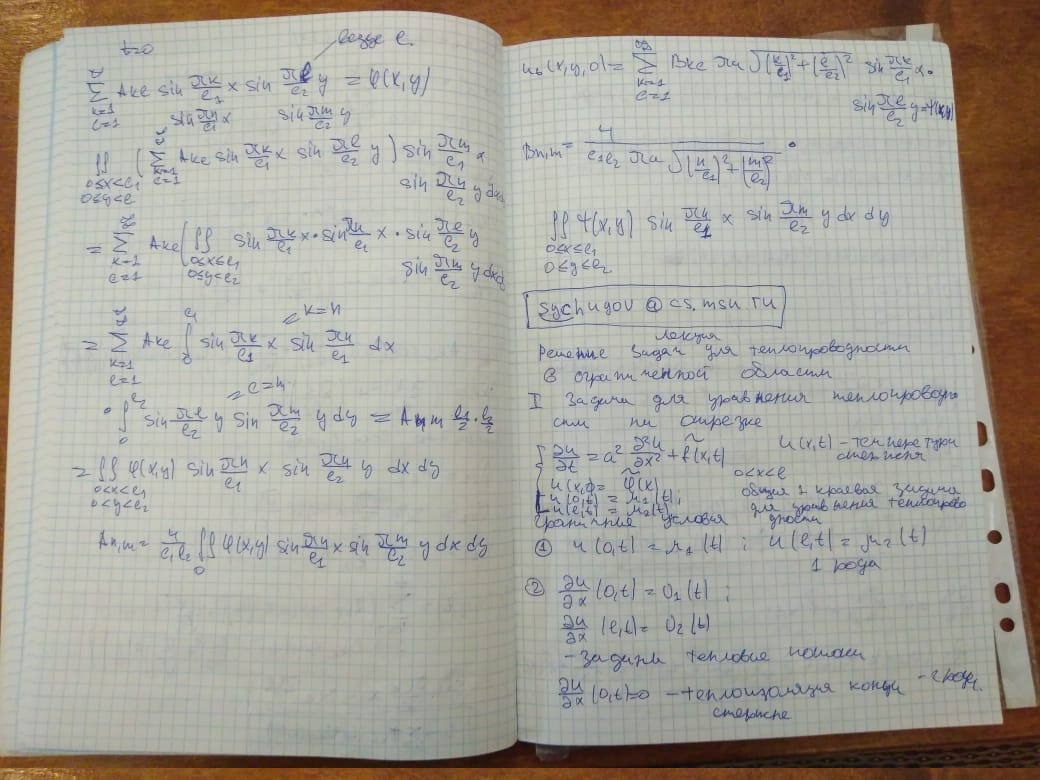 t=0
везде ℓ.
∑_{k=1, ℓ=1}^{∞} A_{kℓ} sin πk/ℓ₁ x sin πℓ/ℓ₂ y = φ(x,y)
sin πn/ℓ₁ x sin πm/ℓ₂ y
∬_{0≤x<ℓ₁, 0≤y<ℓ} (∑_{k=1, ℓ=1}^{∞} A_{kℓ} sin πk/ℓ₁ x sin πℓ/ℓ₂ y) sin πm/ℓ₁ x
sin πn/ℓ₂ y dxd
= ∑_{k=1, ℓ=1}^{∞} A_{kℓ} (∬_{0≤x<ℓ₁, 0≤y<ℓ₂} sin πk/ℓ₁ x · sin πn/ℓ₁ x · sin πℓ/ℓ₂ y
sin πm/ℓ₂ y dxdy
k=n
= ∑_{k=1, ℓ=1}^{∞} A_{kℓ} ∫_{0}^{ℓ₁} sin πk/ℓ₁ x sin πn/ℓ₁ dx
ℓ=m
· ∫_{0}^{ℓ₂} sin πℓ/ℓ₂ y sin πm/ℓ₂ y dy = A_{nm} ℓ₁/2 · ℓ₂/2
= ∬_{0<x<ℓ₁, 0<y<ℓ₂} φ(x,y) sin πn/ℓ₁ x sin πn/ℓ₂ y dx dy
A_{n,m} = 4/ℓ₁ℓ₂ ∬_{0} φ(x,y) sin πn/ℓ₁ x sin πm/ℓ₂ y dx dy
u_t(x,y,0) = ∑_{k=1, ℓ=1}^{∞} B_{kℓ} πa √((k/ℓ₁)² + (ℓ/ℓ₂)²) sin πk/ℓ₁ x ·
sin πℓ/ℓ₂ y = ψ(x,y)
B_{n,m} = 4/(ℓ₁ℓ₂ πa √((n/ℓ₁)² + (m/ℓ₂)²)) ·
∬_{0≤x≤ℓ₁, 0≤y≤ℓ₂} ψ(x,y) sin πn/ℓ₁ x sin πm/ℓ₂ y dx dy
sychugov @ cs.msu.ru
лекция
Решение задач для теплопроводности
в ограниченной области
I Задача для уравнения теплопроводно
сти на отрезке
∂u/∂t = a² ∂²u/∂x² + f̃(x,t) u(x,t) – температура
стержня
0<x<ℓ
u(x,0) = φ̃(x) общая 1 краевая задача
u(0,t) = μ₁(t); для уравнения теплопрово
u(ℓ,t) = μ₂(t) дности
граничные условия
① u(0,t) = μ₁(t); u(ℓ,t) = μ₂(t)
1 рода
② ∂u/∂x (0,t) = υ₁(t);
∂u/∂x (ℓ,t) = υ₂(t)
– заданы тепловые потоки
∂u/∂x (0,t)=0 – теплоизоляция конца – 2 рода.
стержня